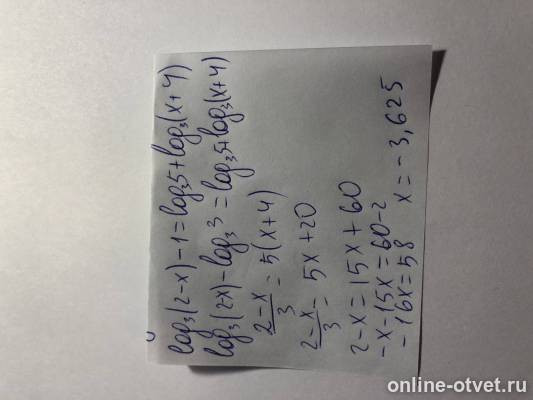 log₃(2-x)-1=log₃5+log₃(x+4)
log₃(2-x)-log₃3=log₃5+log₃(x+4)
(2-x)/3=5(x+4)
(2-x)/3=5x+20
2-x=15x+60
-x-15x=60-2
-16x=58 x=-3,625
online-otvet.ru